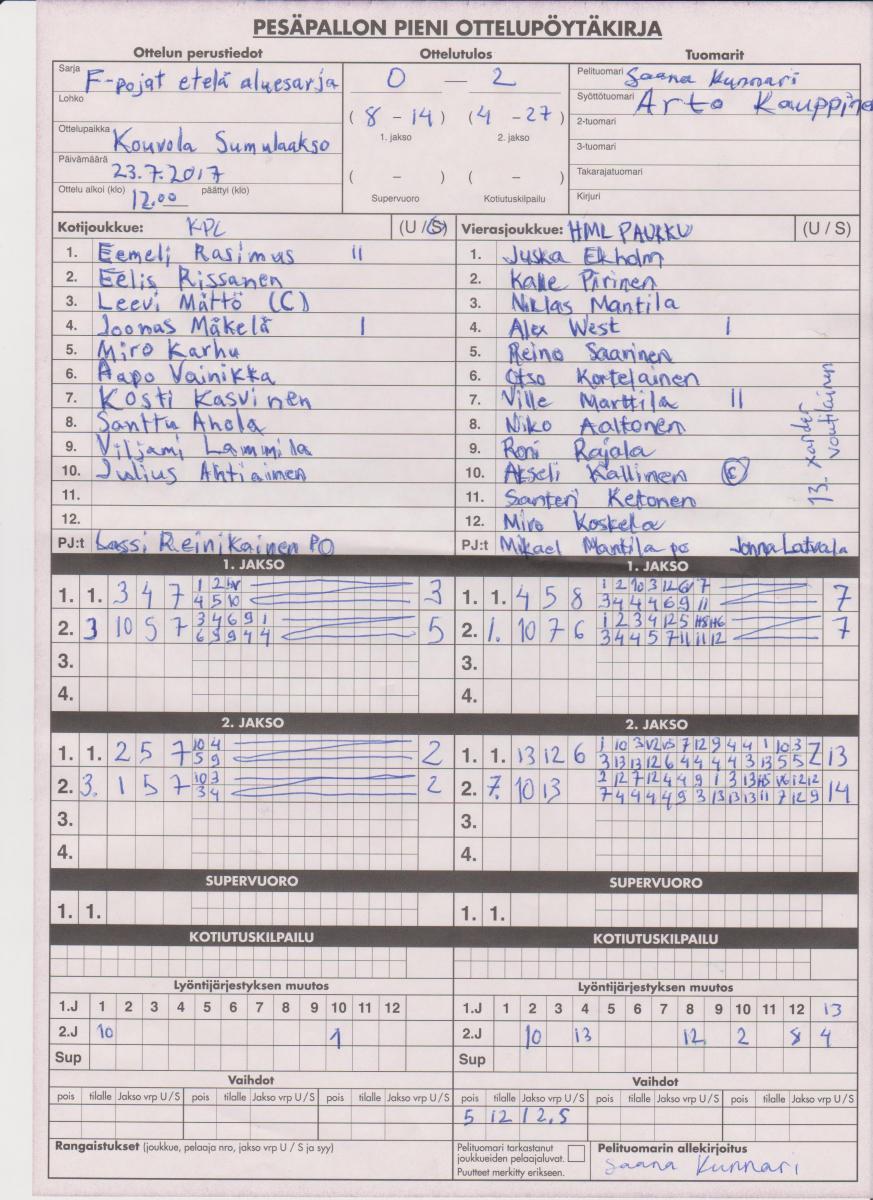 PESÄPALLON PIENI OTTELUPÖYTÄKIRJA
Ottelun perustiedot
Sarja F-pojat etelä aluesarja
Lohko
Ottelupaikka Kouvola Sumulaakso
Päivämäärä 23.7.2017
Ottelu alkoi (klo) 12.00 päättyi (klo)
Ottelutulos
0 — 2
( 8 - 14 ) ( 4 - 27 )
1. jakso 2. jakso
( - ) ( - )
Supervuoro Kotiutuskilpailu
Tuomarit
Pelituomari Saana Kunnari
Syöttötuomari Arto Kauppine
2-tuomari
3-tuomari
Takarajatuomari
Kirjuri
Kotijoukkue: KPL (U / S)
1. Eemeli Rasimus II
2. Eelis Rissanen
3. Leevi Mättö (C)
4. Joonas Mäkelä I
5. Miro Karhu
6. Aapo Vainikka
7. Kosti Kasvinen
8. Santtu Ahola
9. Viljami Lammila
10. Julius Ahtiainen
11.
12.
PJ:t Lassi Reinikainen PO
Vierasjoukkue: HML PAUKKU (U / S)
1. Juska Ekholm
2. Kalle Pirinen
3. Niklas Mantila
4. Alex West I
5. Reino Saarinen
6. Otso Kortelainen
7. Ville Marttila II
8. Niko Aaltonen
9. Roni Rajala
10. Akseli Kallinen C
11. Santeri Ketonen
12. Miro Koskela
13. Xander Voutilainen
PJ:t Mikael Mantila po Jonna Latvala
1. JAKSO
1. 1. 3 4 7 1 2 4 5 10 3
2. 3 10 5 7 3 4 6 9 1 6 9 9 4 4 5
3.
4.
1. JAKSO
1. 1. 4 5 8 1 2 10 3 12 6 7 3 4 4 4 6 9 11 7
2. 1. 10 7 6 1 2 3 4 12 5 3 4 4 5 7 11 11 12 7
3.
4.
2. JAKSO
1. 1. 2 5 7 10 4 5 9 2
2. 3. 1 5 7 10 3 3 4 2
3.
4.
2. JAKSO
1. 1. 13 12 6 1 10 3 12 7 12 9 4 4 1 10 3 3 13 13 12 6 4 4 4 4 3 13 5 5 13
2. 7. 10 13 2 12 7 12 4 4 9 1 3 12 12 7 4 4 4 4 9 3 13 13 13 11 7 12 9 14
3.
4.
SUPERVUORO
1. 1.
SUPERVUORO
1. 1.
KOTIUTUSKILPAILU
KOTIUTUSKILPAILU
Lyöntijärjestyksen muutos
1.J 1 2 3 4 5 6 7 8 9 10 11 12
2.J 10 1
Sup
Lyöntijärjestyksen muutos
1.J 1 2 3 4 5 6 7 8 9 10 11 12 13
2.J 10 13 12 2 8 4
Sup
Vaihdot
pois tilalle Jakso vrp U / S pois tilalle Jakso vrp U / S pois tilalle Jakso vrp U / S
Vaihdot
pois tilalle Jakso vrp U / S pois tilalle Jakso vrp U / S pois tilalle Jakso vrp U / S
5 12 1 2.S
Rangaistukset (joukkue, pelaaja nro, jakso vrp U / S ja syy)
Pelituomari tarkastanut
joukkueiden pelaajaluvat.
Puutteet merkitty erikseen.
Pelituomarin allekirjoitus
Saana Kunnari